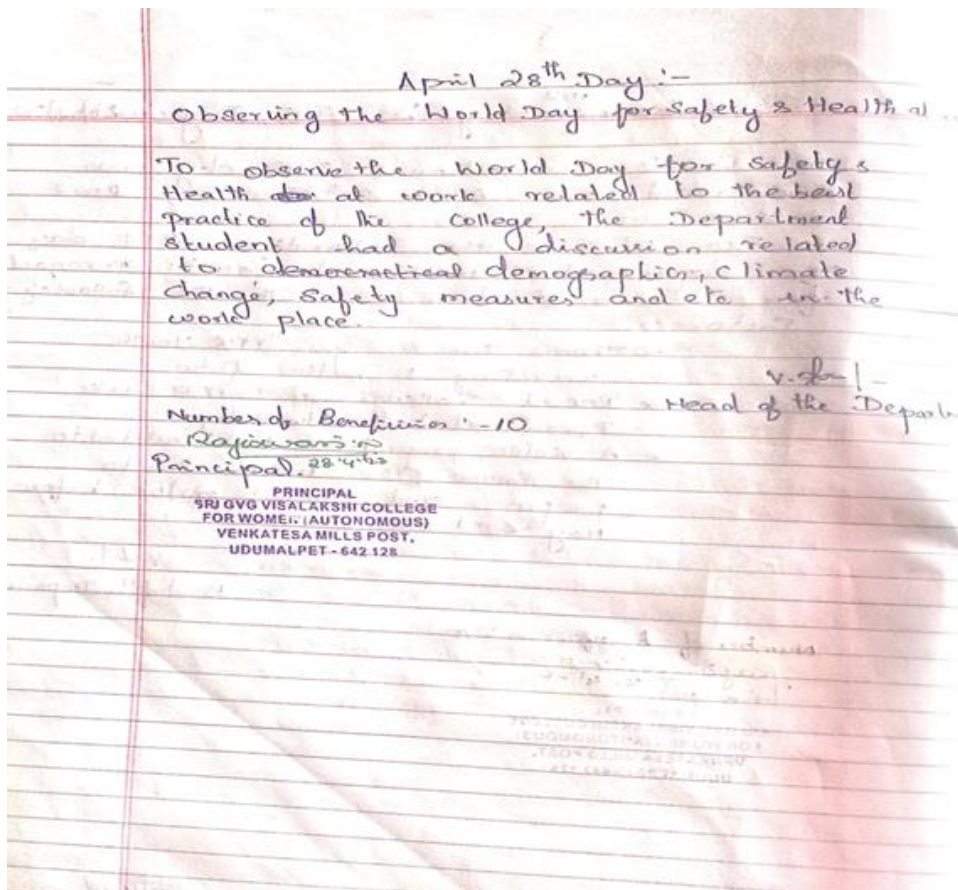 April 28th Day :-
Observing the World Day for Safety & Health at
To observe the World Day for Safety &
Health at work related to the best
practice of the College, the Department
student had a discussion related
to demographics, climate
change, safety measures and etc in the
work place.
Head of the Depart
Number of Beneficiaries :- 10
Rajeswari
Principal. 28.4.23
PRINCIPAL
SRI GVG VISALAKSHI COLLEGE
FOR WOMEN (AUTONOMOUS)
VENKATESA MILLS POST,
UDUMALPET - 642 128